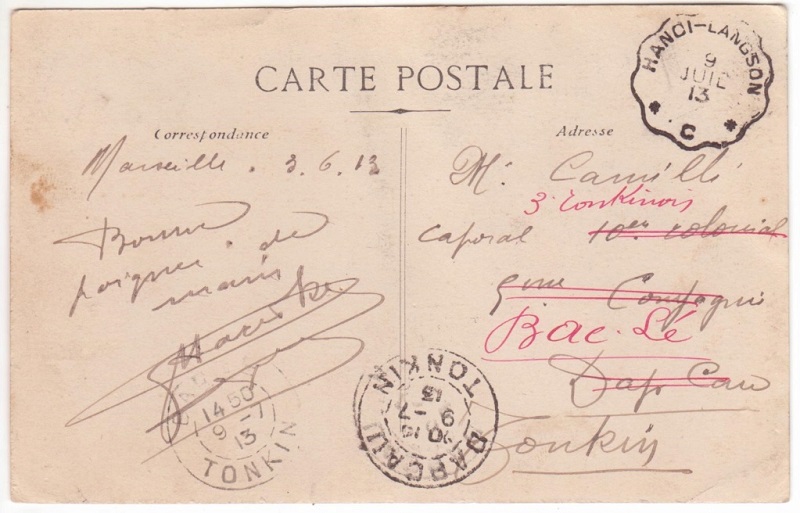 CARTE POSTALE
Correspondance
Adresse
Marseille . 3.6.13
Bonne
poignée de
mains
M. Camilli
3 Tonkinois
caporal 10em colonial
9eme Compagnie
Bac-Lé
Dap Cau
Tonkin
HANOI-LANGSON
9
JUIL
13
* C *
1450
9 -7
13
TONKIN
TONKIN
13
9 -7
DAPCAU